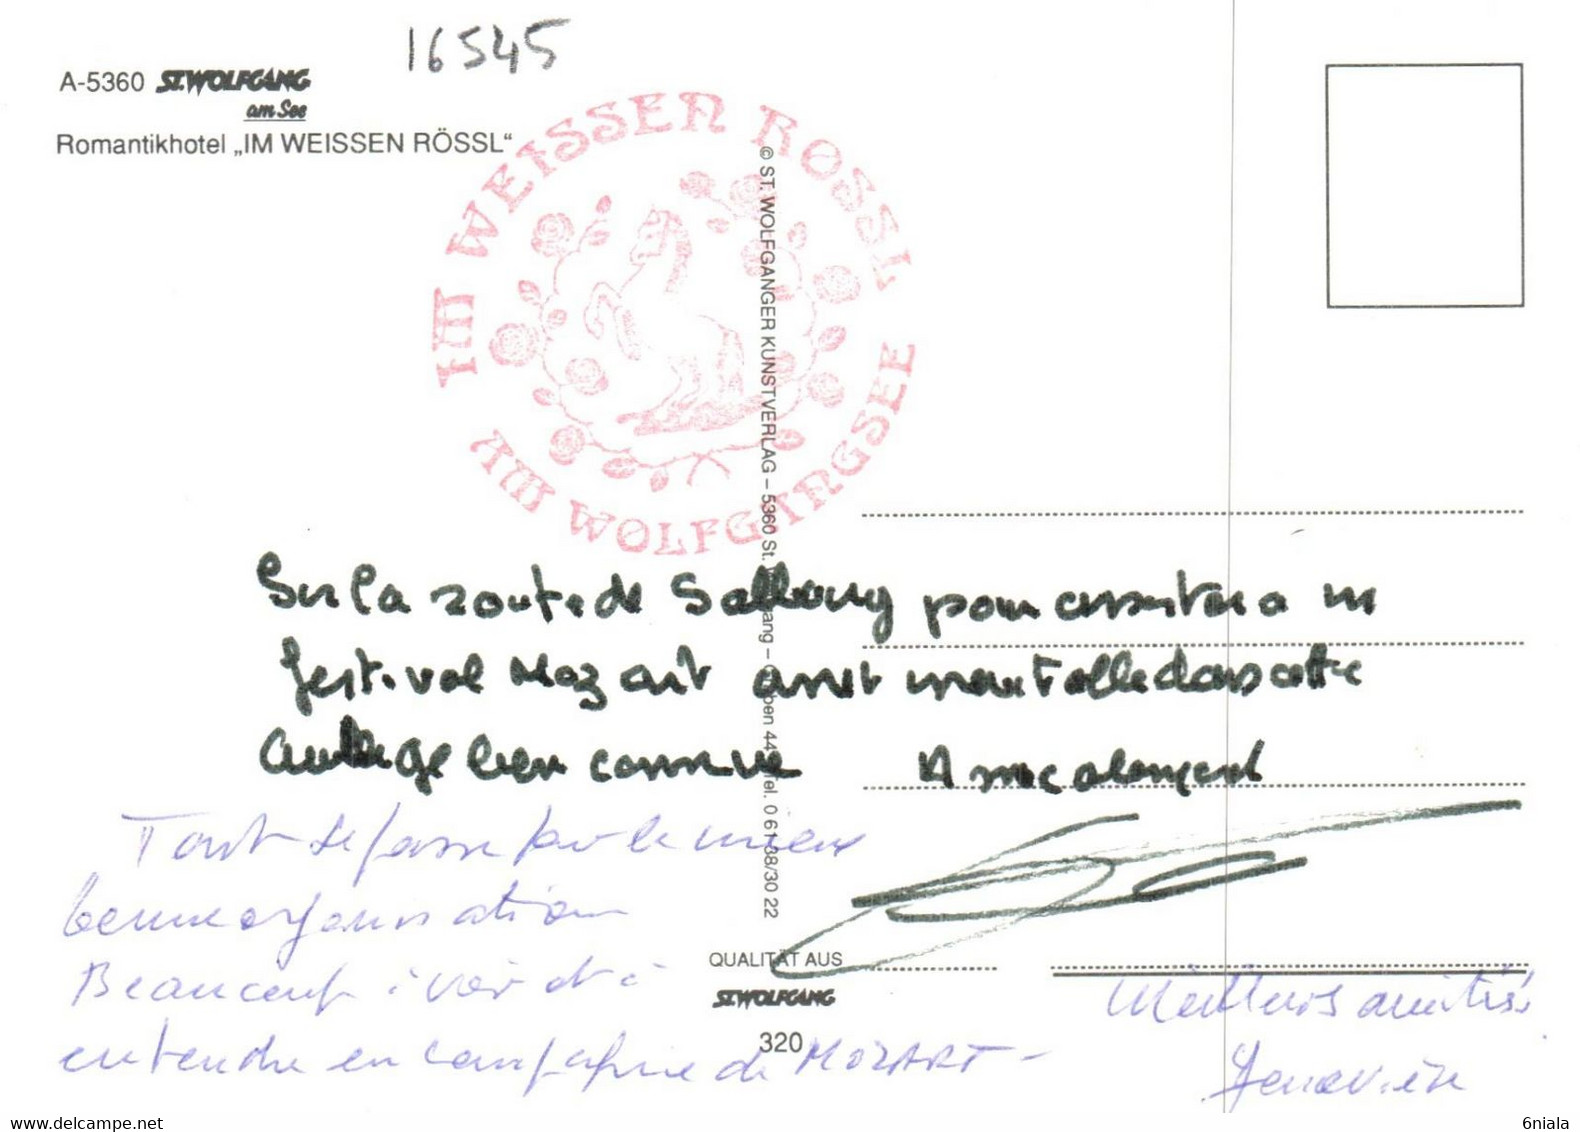 16545
A-5360 ST.WOLFGANG
am See
Romantikhotel „IM WEISSEN RÖSSL“
IM WEISSEN ROSSL
AM WOLFGANGSEE
© ST. WOLFGANGER KUNSTVERLAG – 5360 St.
Sur la route de Salzbourg pour assister a un
festival Mozart arret dans cette
Auberge bien connue Amicalement
Tout se passe pour le mieux
bonne organisation
Beaucoup à voir et à
entendre en compagnie de MOZART –
Meilleures amitiés
Geneviève
QUALITÄT AUS
ST.WOLFGANG
320
6niala